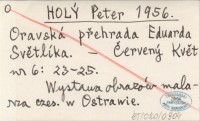 O
HOLÝ Peter 1956.
Oravská přehrada Eduarda
Světlíka. – Červený Květ
nr 6: 23-25.
Wystawa obrazów mala-
rza czes. w Ostrawie.